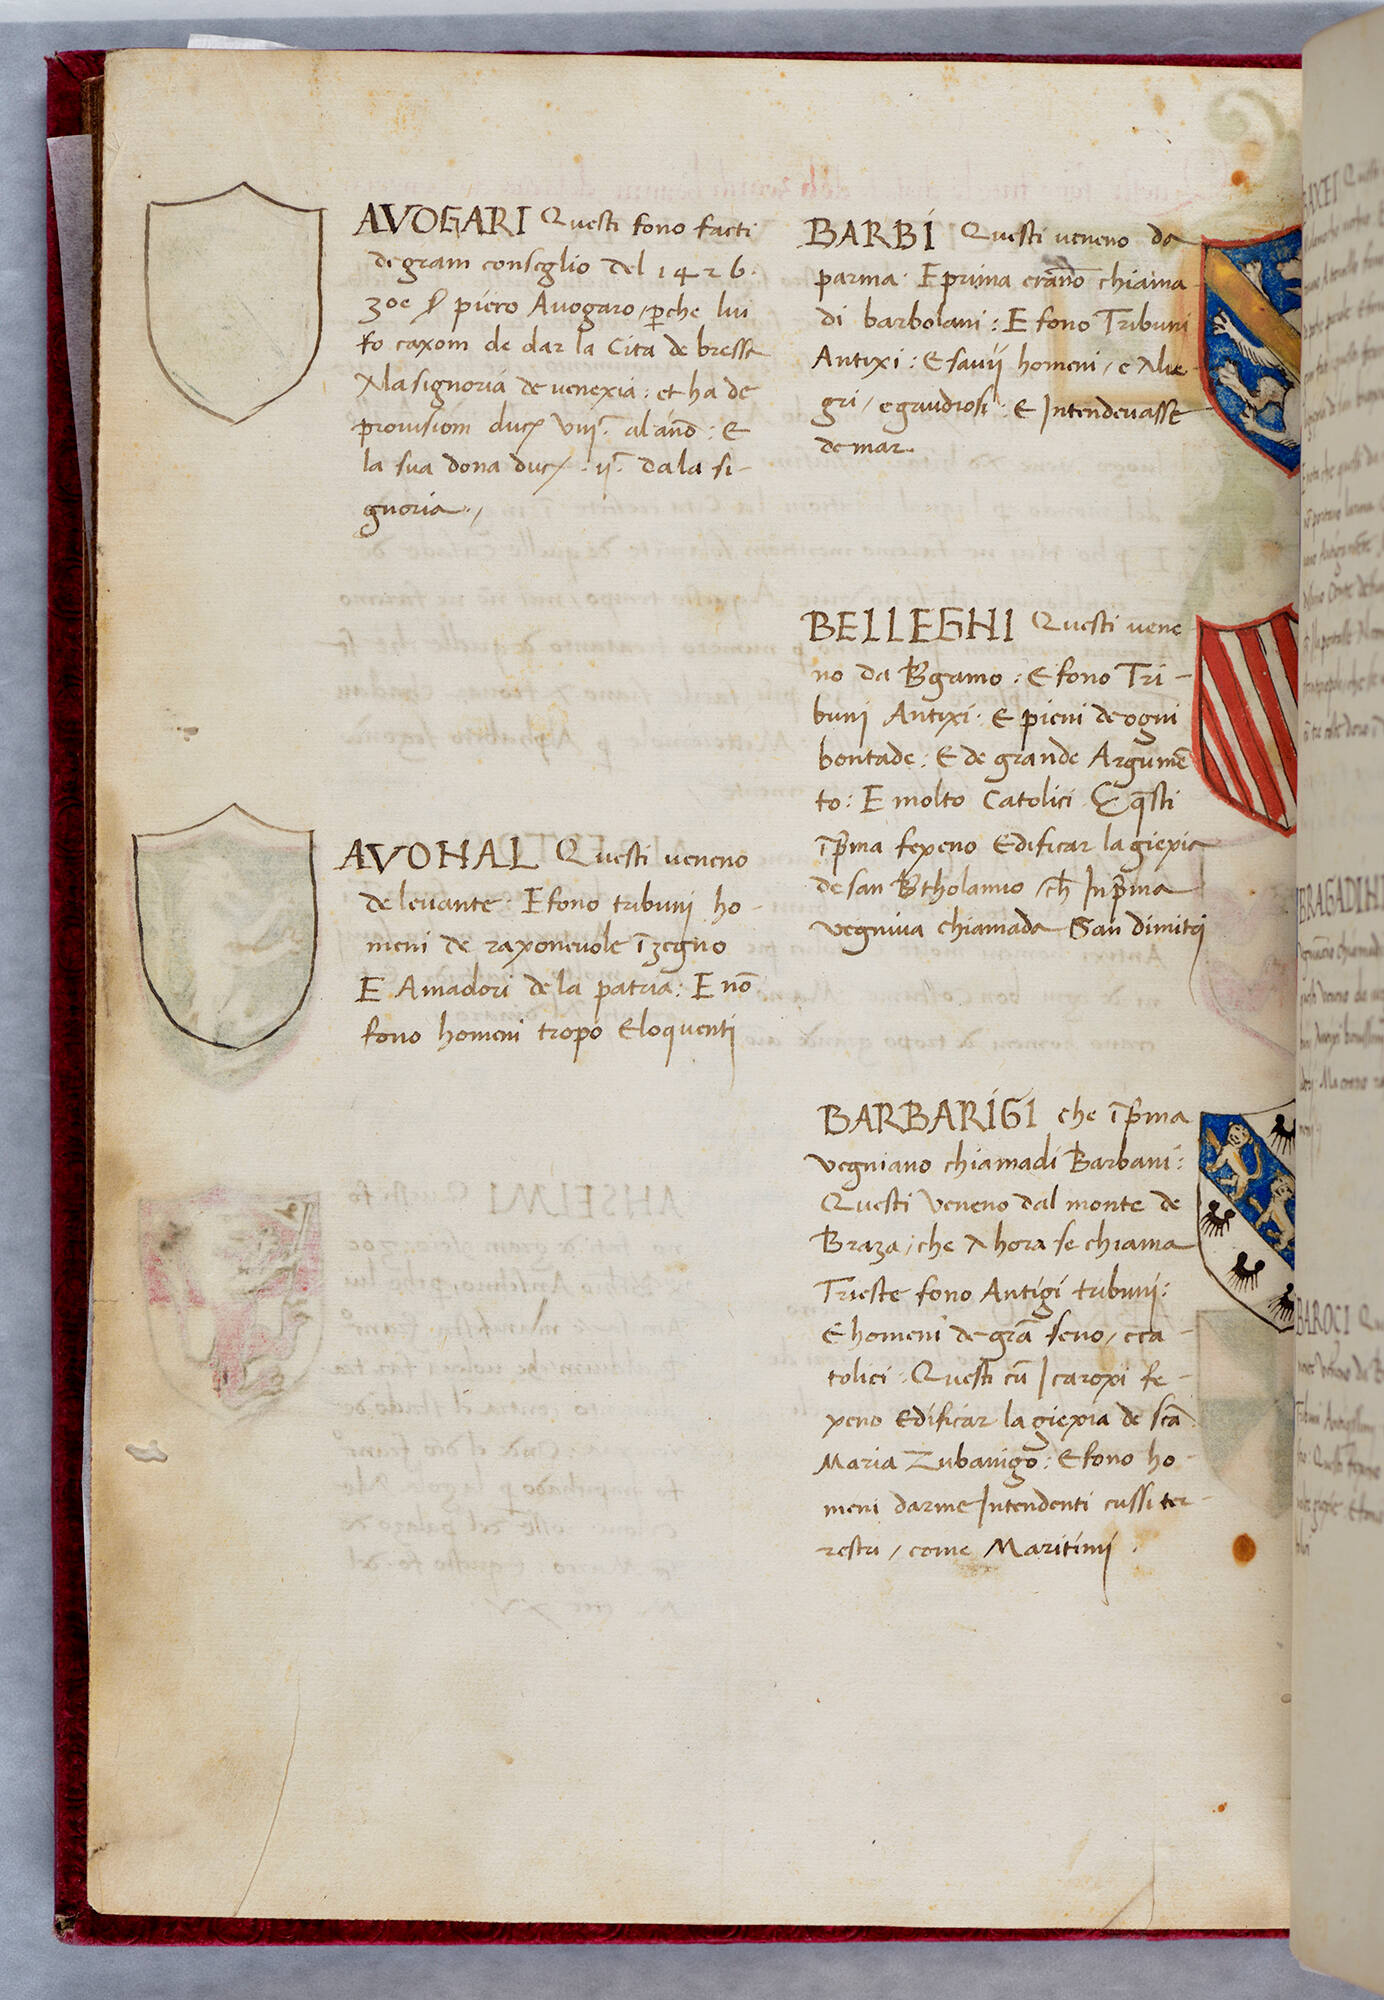 AVOGARI Questi fono facti
de gram conseglio del 1426.
zoe S piero Auogaro, perche lui
fo caxom de dar la Cita de bressa
A la signoria de venexia: et ha de
prouisiom duc. VIIIc. al año: E
la sua dona duc. IIc. dala si-
gnoria.,
AVOHAL Questi ueneno
de leuante: E fono tribuni ho-
meni de raxoneuole īzegno
E Amadori de la patria: E nō
fono homeni tropo Eloquenti
BARBI Questi ueneno da
parma: E prima erano chiama
di barbolani: E fono Tribuni
Antixi: E sauij homeni, e Alie
gri, e graudiosi: E Intendeuasse
de mar.
BELLEGHI Questi uene
no da Bgamo: E fono Tri-
buni Antixi: E pieni de ogni
bontade: E de grande Argumē
to: E molto Catolici E qsti
īprima fexeno Edificar la giexia
de san Btholamio, ch Inprima
vegniua chiamada San dimitri
BARBARIGI che īprima
vegniano chiamadi Barbani:
Questi Veneno dal monte de
Braza, che Ahora se chiama
Trieste fono Antigi tribuni:
E homeni de grā seno, e ca-
tolici: Questi cū I caroxi fe-
xeno Edificar la giexia de scā
Maria Zubanigo: E fono ho-
meni darme Intendenti cussi ter-
restri, come Maritimi.
BRAGADIHI
BAROCI